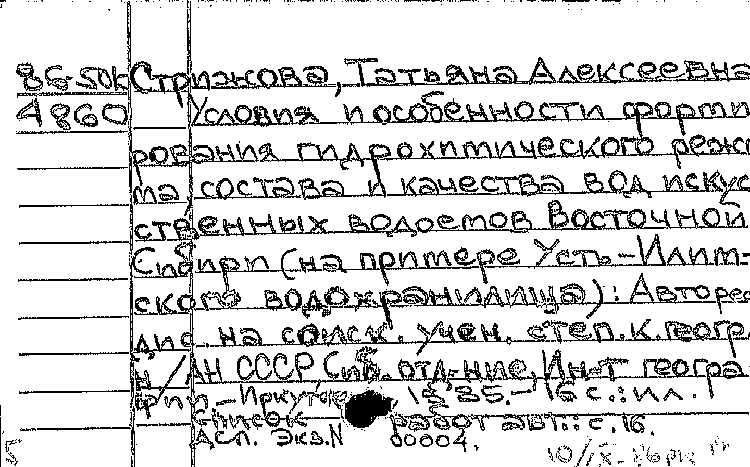 86-50к Стрижова, Татьяна Алексеевна
4860 Условия и особенности форми
рования гидрохимического режи
ма, состава и качества вод искус
ственных водоемов Восточной
Сибири (на примере Усть-Илим-
ского водохранилища): Авторе
дис. на соиск. учен. степ. к. геогр.
н / АН СССР Сиб. отд-ние, Ин-т геогра
фии - Иркутск 1985. - 16 с.: ил.
Список работ авт.: с. 16.
Дсп. Экз. N 00004.